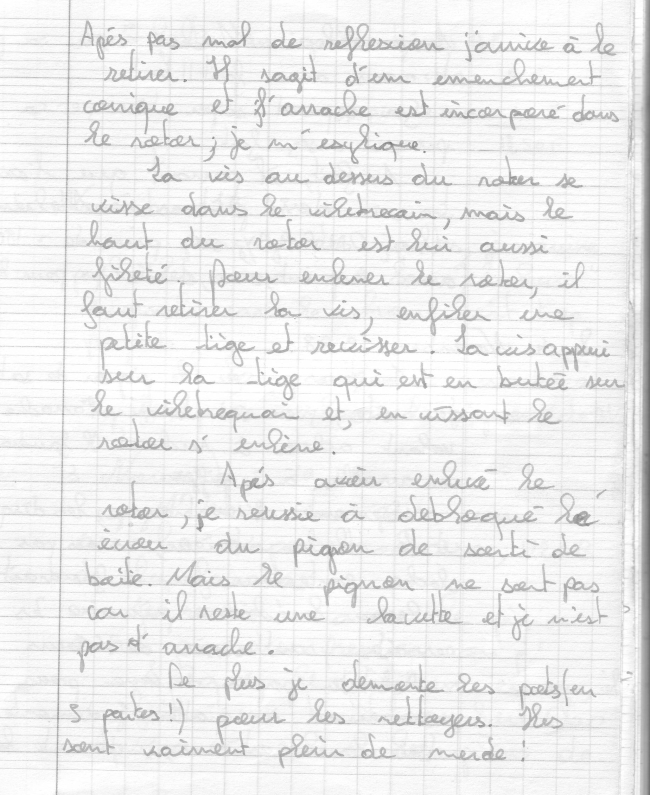 Apés pas mal de reflexion j'arrive à le
retirer. Il sagit d'un emenchement
conique et l'arrache est incorporé dans
le rotor ; je m'explique.
La vis au dessus du rotor se
visse dans le vilebrecain, mais le
haut du rotor est lui aussi
fileté. Pour enlener le rotor, il
faut retirer la vis, enfiler une
petite tige et revisser. La vis appui
sur la tige qui est en butée sur
le vilebrequain et, en vissant le
rotor s'enlène.
Apés avoir enlevé le
rotor, je reussie à debloqué le
écrou du pignon de sortì de
boite. Mais le pignon ne sort pas
car il reste une clavette et je n'est
pas d'arrache.
De plus je demonte les pots (en
3 parties !) pour les nettoyers. Ils
sont vaiment plein de merde !